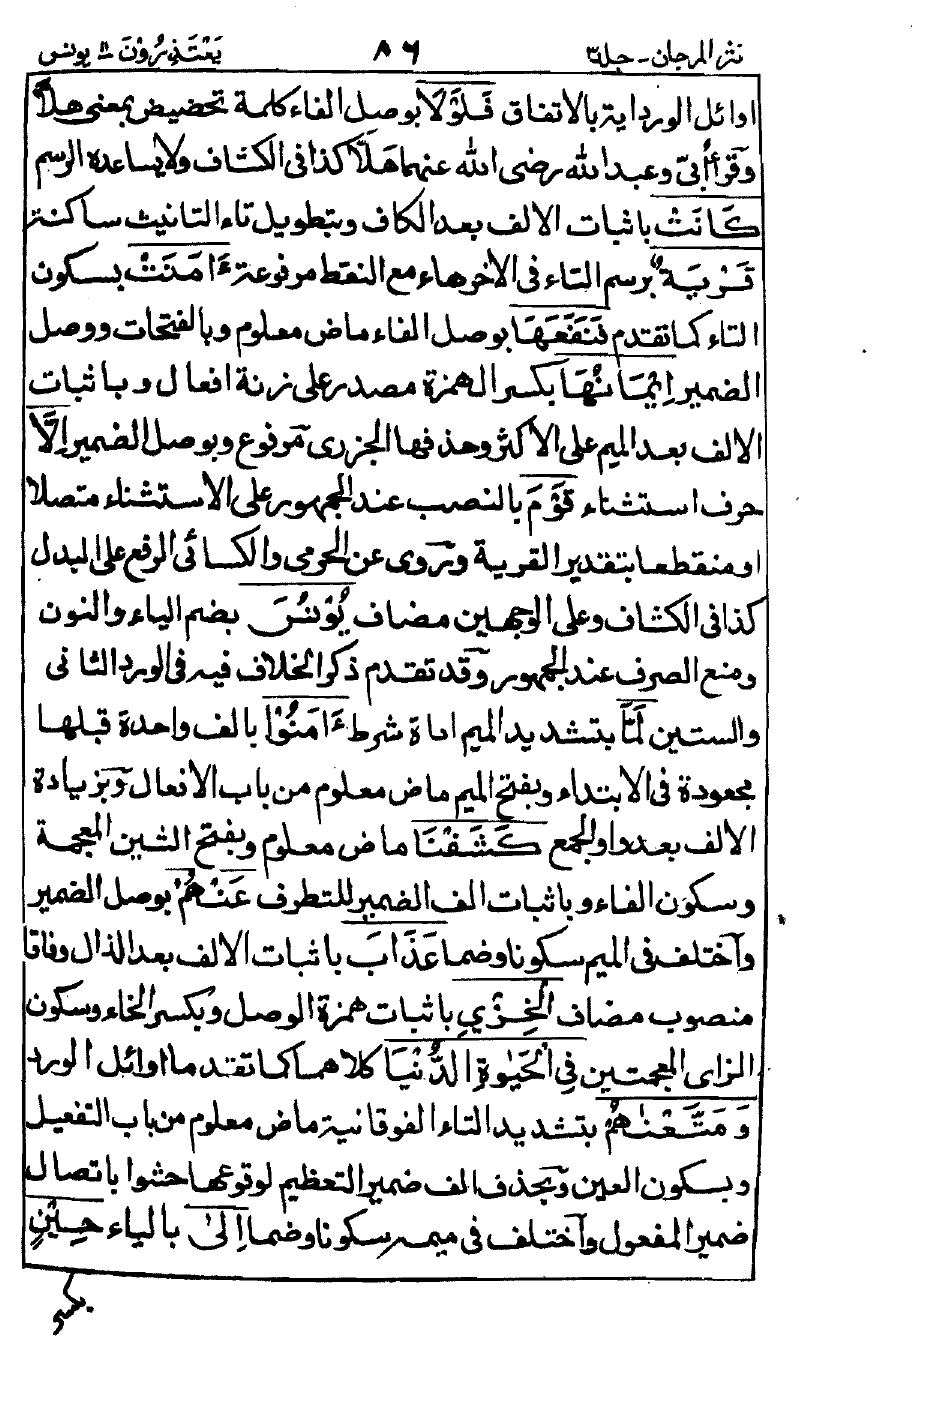 نثر المرجان - جلد ٣
٨٦
يَعْتَذِرُوْنَ ١١ يونس
اوائل الورد اية بالاتفاق فَلَوْلَا بوصل الفاء كلمة تحضيض بمعنى هلّا
وقرأ أُبيّ وعبد الله رضى الله عنهما هَلَّا كذا فى الكشاف ولا يساعده الرسم
كَانَتْ باثبات الالف بعد الكاف وبتطويل تاء التانيث ساكنة
قَرْيَةٌ برسم التاء فى الأخر هاء مع النقط مرفوعة ءَامَنَتْ بسكون
التاء كما تقدم فَنَفَعَهَا بوصل الفاء ماض معلوم وبالفتحات ووصل
الضمير اِيْمَانُهَا بكسر الهمزة مصدر على زنة افعال وباثبات
الالف بعد الميم على الاكثر وحذفها الجزرى مرفوع وبوصل الضمير اِلَّا
حرف استثناء قَوْمَ بالنصب عند الجمهور على الاستثناء متصلا
او منقطعا بتقدير القرية ورُوى عن الجرمى والكسائى الرفع على البدل
كذا فى الكشاف وعلى الوجهين مضاف يُوْنُسَ بضم الياء والنون
ومنع الصرف عند الجمهور وقد تقدم ذكر الخلاف فيه فى الورد الثانى
والستين لَمَّا بتشديد الميم اداة شرط ءَامَنُوْا بالف واحدة قبلها
مجعودة فى الابتداء وبفتح الميم ماض معلوم من باب الافعال وبزيادة
الالف بعد واو الجمع كَشَفْنَا ماض معلوم وبفتح الشين المعجمة
وسكون الفاء وباثبات الف الضمير للتطرف عَنْهُمْ بوصل الضمير
واختلف فى الميم سكونا وضما عَذَابَ باثبات الالف بعد الذال وفاقا
منصوب مضاف الْخِزْيِ باثبات همزة الوصل وبكسر الخاء وسكون
الزاى المعجمتين فِي الْحَيٰوةِ الدُّنْيَا كلاهما كما تقدم اوائل الورد
وَمَتَّعْنٰهُمْ بتشديد التاء الفوقانية ماض معلوم من باب التفعيل
وبسكون العين وبحذف الف ضمير التعظيم لوقوعها حشوا باتصال
ضمير المفعول واختلف فى ميمه سكونا وضما اِلٰى بالياء حِيْنٍ
بكسر